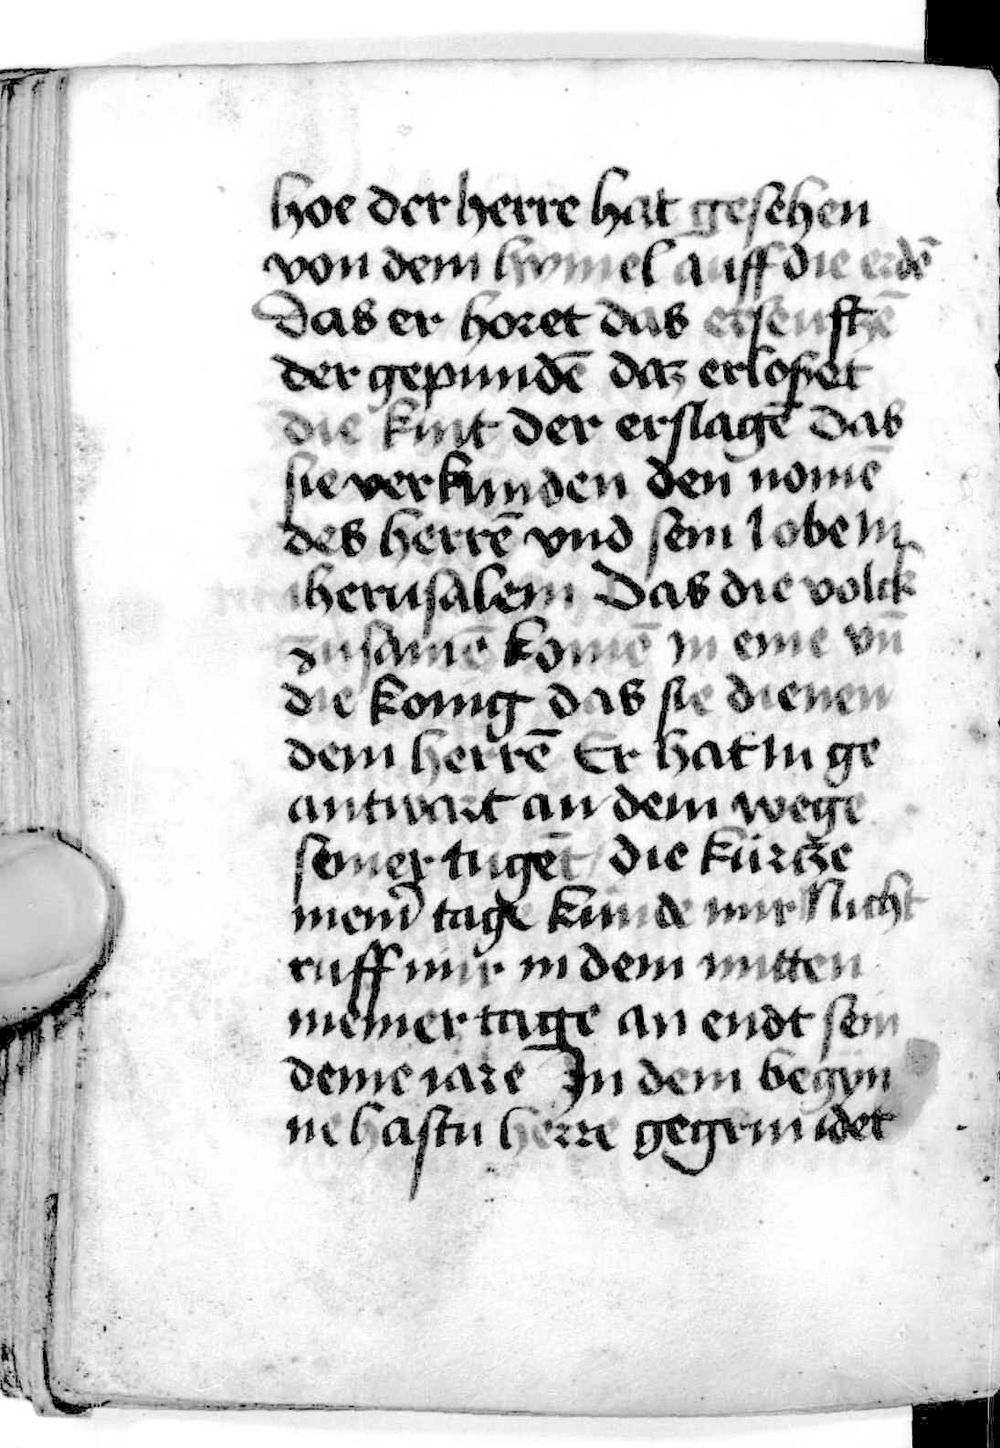 hoe der herre hat gesehen
von dem hymel auff die erdē
Das er horet das erseuftzē
der gepundē daz erloset
die kint der erslagē Das
sie verkunden den nomē
des herrē vnd sein lobe in
iherusalem Das die volck
zusamē komē in eine vn̄
die konig das sie dienen
dem herrē Er hat in ge
antwart an dem wege
seiner tugēt / die kürcze
meinr̄ tage künde mir Nicht
ruff mir in dem mitten
meiner tage an endt sein
deine iarē In dem begyn
ne hastu herre gegrundet